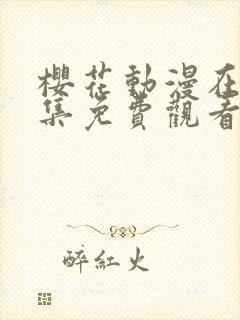 櫻花動漫在
集免費觀看
醉紅火